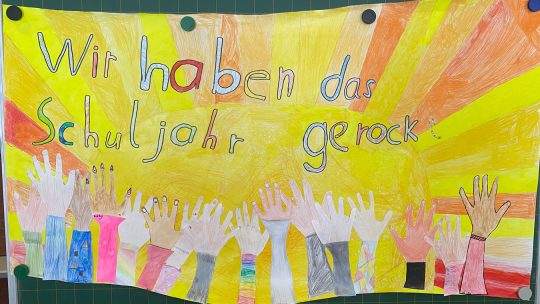 Wir haben das
Schuljahr gerockt